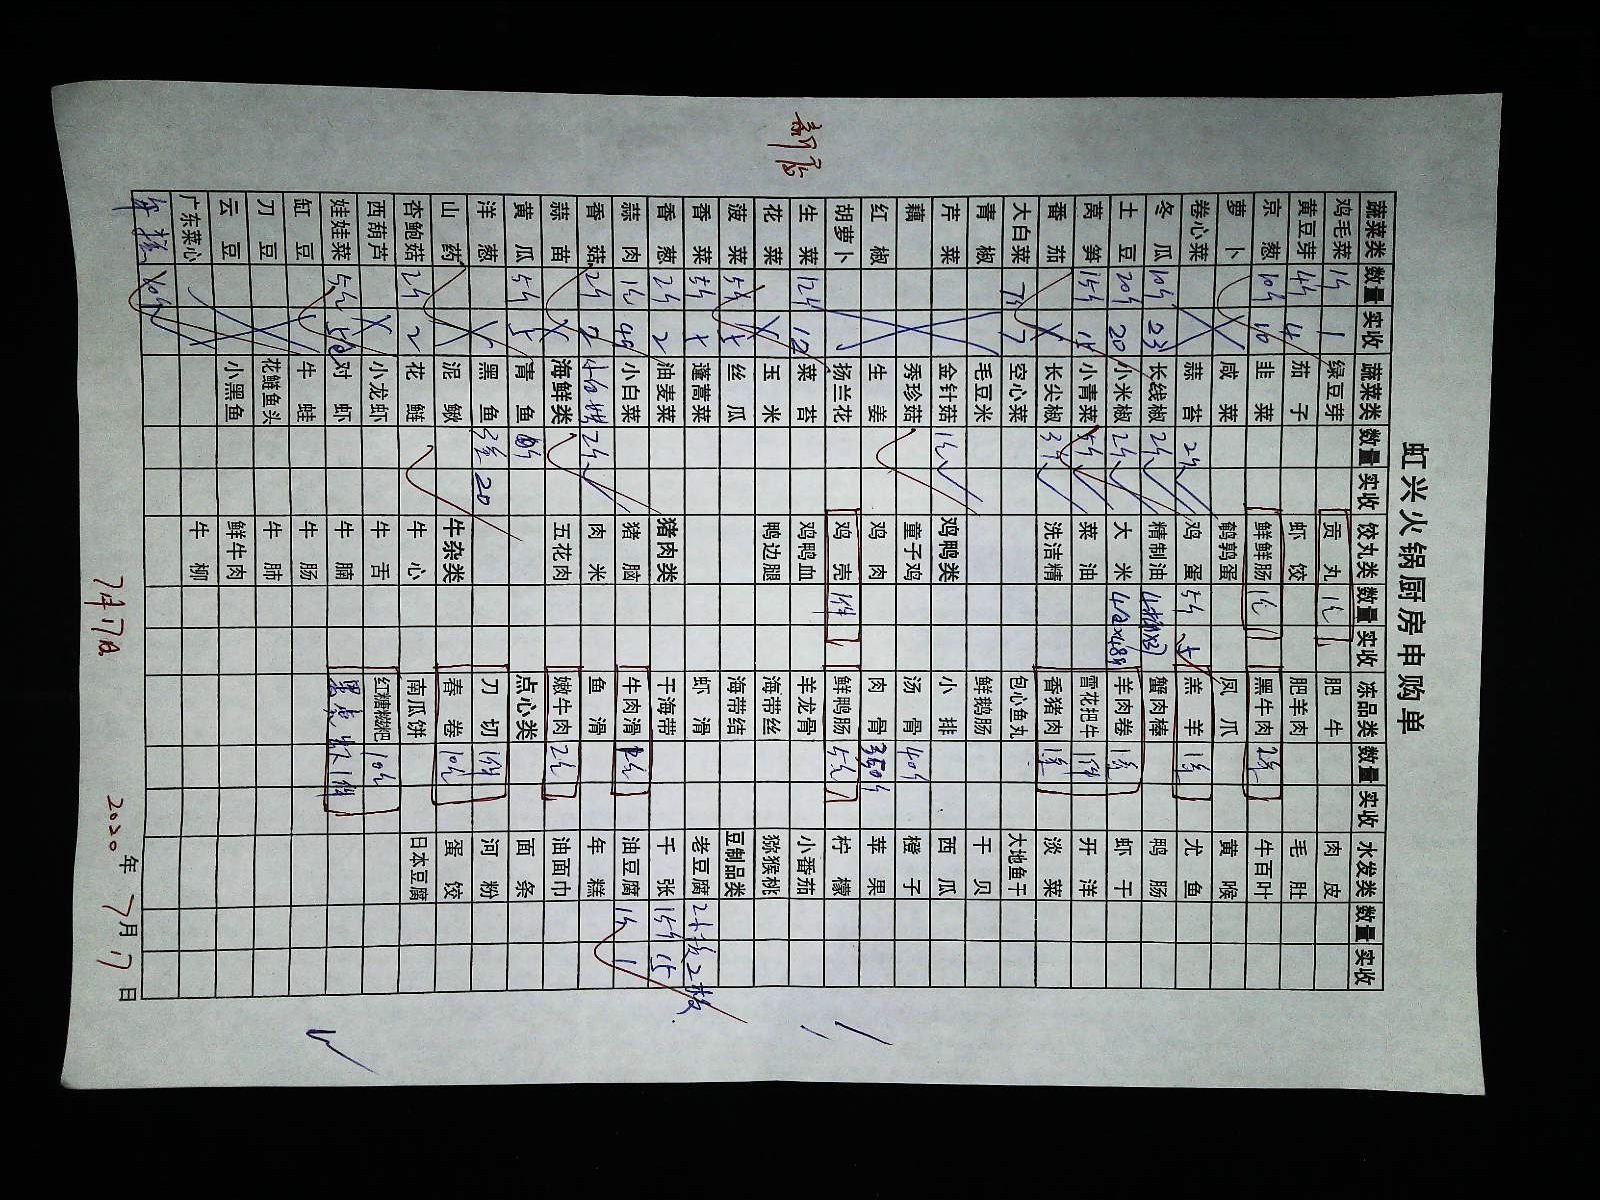 新店
虹兴火锅厨房申购单
蔬菜类 数量 实收 蔬菜类 数量 实收 饺丸类 数量 实收 冻品类 数量 实收 水发类 数量 实收
鸡毛菜 1斤 1 绿豆芽 贡丸 1包 肥牛 肉皮
黄豆芽 4斤 4 茄子 虾饺 肥羊肉 毛肚
京葱 10斤 10 韭菜 鲜鲜肠 1包 黑牛肉 2条 牛百叶
萝卜 咸菜 鹌鹑蛋 凤爪 黄喉
卷心菜 蒜苔 2斤 鸡蛋 5斤 5 羔羊 1条 尤鱼
冬瓜 10斤 23 长线椒 2斤 精制油 蟹肉棒 鸭肠
土豆 20斤 20 小米椒 2斤 大米 羊肉卷 1条 虾干
莴笋 15斤 15 小青菜 5斤 菜油 雪花把牛 1件 开洋
番茄 长尖椒 3斤 洗洁精 香猪肉 1条 淡菜
大白菜 7斤 7 空心菜 包心鱼丸 大地鱼干
青椒 毛豆米 鲜鹅肠 干贝
芹菜 金针菇 1包 鸡鸭类 小排 西瓜
藕 秀珍菇 童子鸡 汤骨 40斤 橙子
红椒 生姜 鸡肉 肉骨 苹果
胡萝卜 扬兰花 鸡壳 1件 鲜鸭肠 5包 柠檬
生菜 12斤 12 菜苔 鸡鸭血 羊龙骨 小番茄
花菜 玉米 鸭边腿 海带丝 猕猴桃
菠菜 5斤 5 丝瓜 海带结 豆制品类
香菜 蓬蒿菜 虾滑 老豆腐 2板 2板
香葱 2斤 2 油麦菜 猪肉类 干海带 千张 15斤 15
蒜肉 小白菜 猪脑 牛肉滑 油豆腐 1斤 1
香菇 2斤 2 2斤 肉米 鱼滑 年糕
蒜苗 海鲜类 五花肉 嫩牛肉 2包 油面巾
黄瓜 5斤 5 青鱼 点心类 面条
洋葱 黑鱼 3条 20 刀切 1件 河粉
山药 泥鳅 牛杂类 春卷 10包 蛋饺
杏鲍菇 2斤 2 花鲢 牛心 南瓜饼 日本豆腐
西葫芦 小龙虾 牛舌 红糖糍粑 10包
娃娃菜 5包 5包 对虾 牛腩 1件
豇豆 牛蛙 牛肠
刀豆 花鲢鱼头 牛肺
云豆 小黑鱼 鲜牛肉
广东菜心 牛柳
7月17日 2020年7月17日